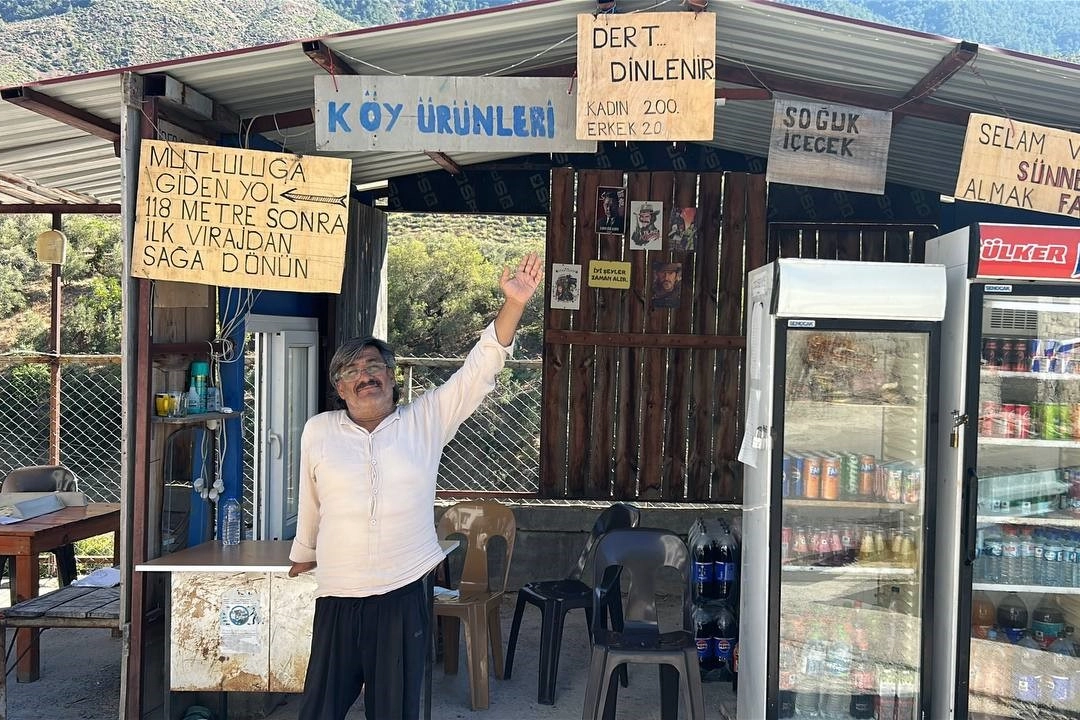 KÖY ÜRÜNLERİ
DERT...
DİNLENİR
KADIN 200.
ERKEK 20.
SOĞUK
İÇECEK
SELAM V
SÜNNE
ALMAK FA
MUTLULUĞA
GİDEN YOL
118 METRE SONRA
İLK VİRAJDAN
SAĞA DÖNÜN
İYİ ŞEYLER
ZAMAN ALIR.
ÜLKER
SENOCAK
SENOCAK